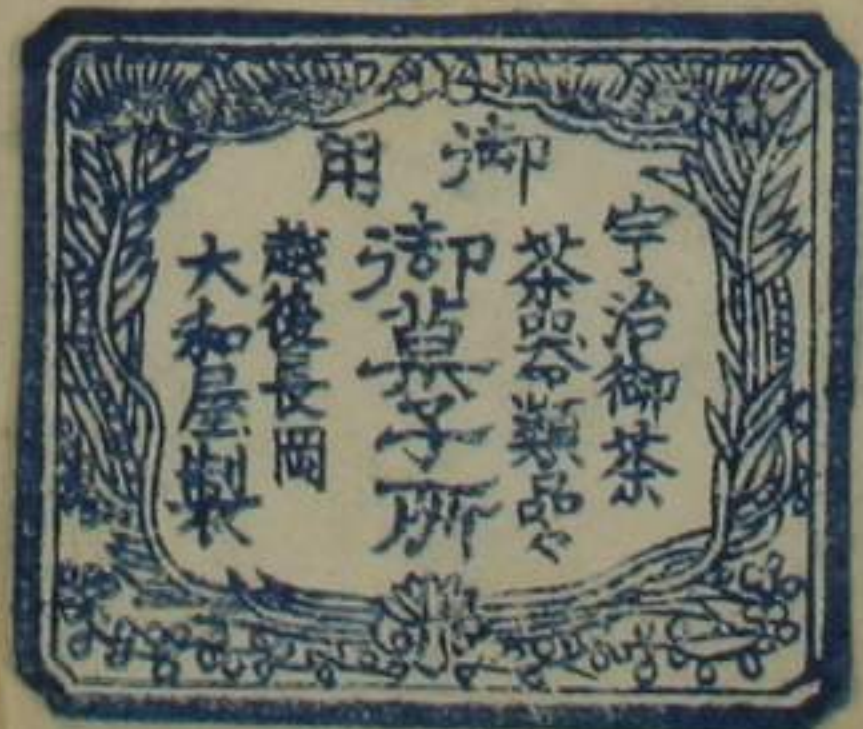 御用
宇治御茶
茶器類品々
御菓子所
越後長岡
大和屋製